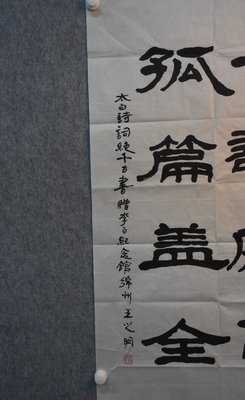 孤篇盖全
太白詩詞絶千古書贈李白紀念館綿州王